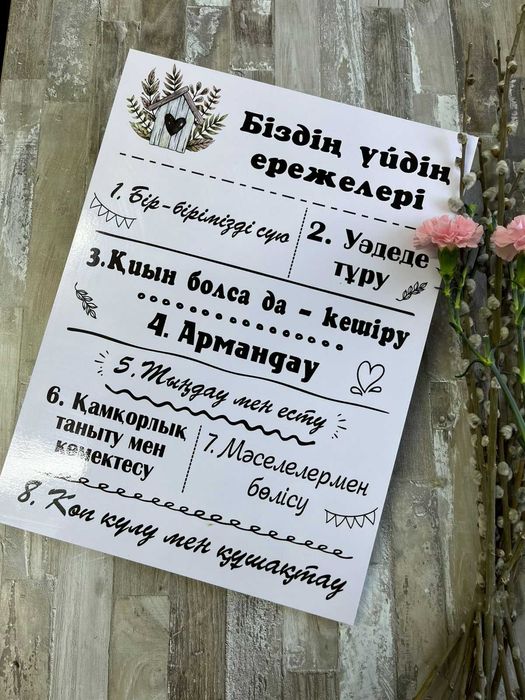 Біздің үйдің
ережелері
1. Бір-бірімізді сүю
2. Уәдеде
тұру
3. Қиын болса да - кешіру
4. Армандау
5. Тыңдау мен есту
6. Қамқорлық
таныту мен
көмектесу
7. Мәселелермен
бөлісу
8. Көп күлу мен құшақтау